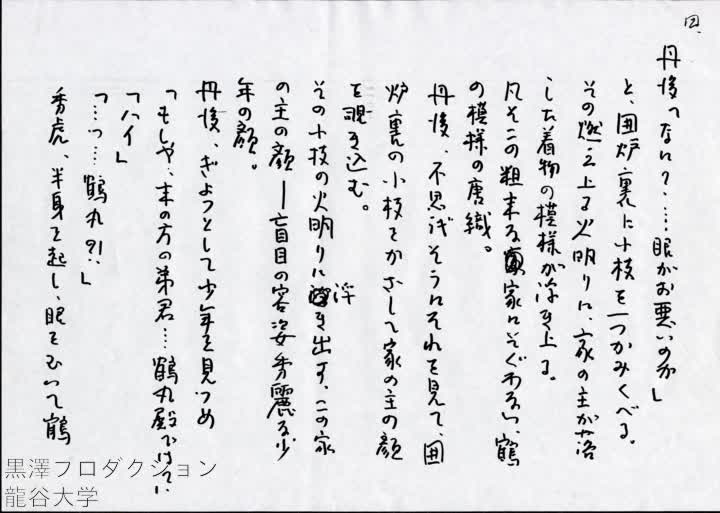 丹後「なに?……眼がお悪いのか」
と、囲炉裏に小枝を一つかみくべる。
その燃え上る火明りに、家の主が落
した着物の模様が浮き上る。
凡そこの粗末な家にそぐわない、鶴
の模様の唐織。
丹後、不思議そうにそれを見て、囲
炉裏の小枝をかざして家の主の顔
を覗き込む。
その小枝の火明りに浮き出す、この家
の主の顔——盲目の容姿秀麗な少
年の顔。
丹後、ぎょっとして少年を見つめ
「もしや、末の方の弟君…鶴丸殿では
「ハイ」
「…っ…鶴丸?!」
秀虎、半身を起し、眼をむいて鶴
黒澤プロダクション
龍谷大学